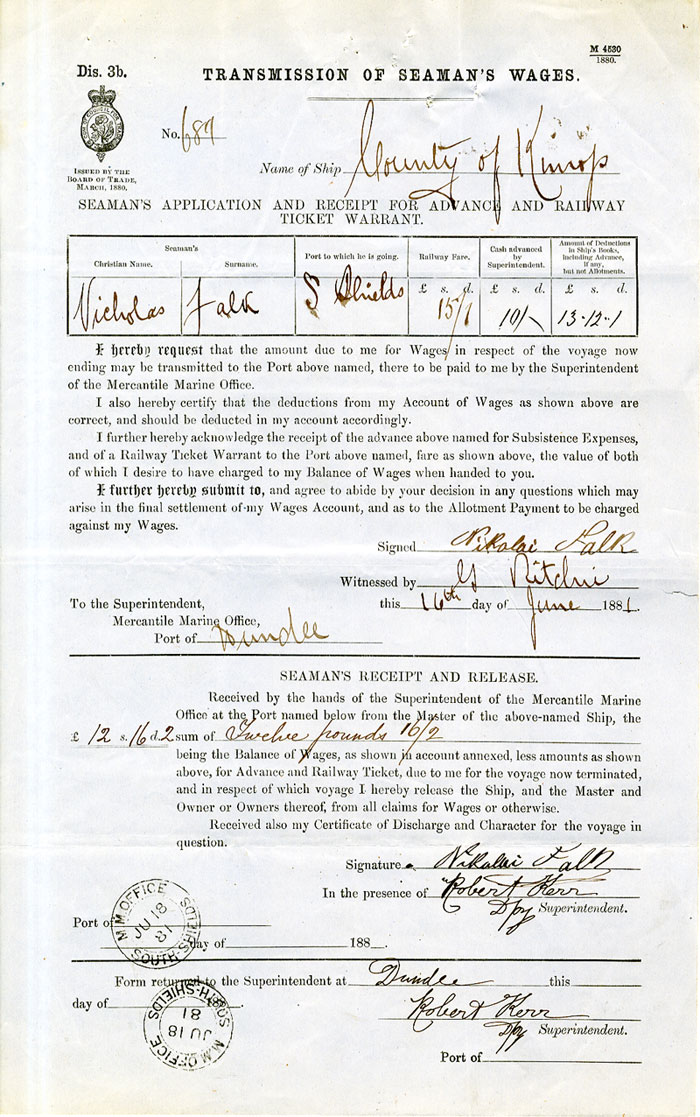 M 4530
1880.
Dis. 3b.
TRANSMISSION OF SEAMAN'S WAGES.
No. 689
Name of Ship County of Kinross
ISSUED BY THE
BOARD OF TRADE,
MARCH, 1880.
SEAMAN'S APPLICATION AND RECEIPT FOR ADVANCE AND RAILWAY
TICKET WARRANT.
Seaman's
Christian Name. Surname.
Port to which he is going.
Railway Fare.
Cash advanced
by
Superintendent.
Amount of Deductions
in Ship's Books,
including Advance,
if any,
but not Allotments.
£ s. d. £ s. d. £ s. d.
Nicholas Falk S Shields 15/1 10/- 13-12-1
I hereby request that the amount due to me for Wages in respect of the voyage now
ending may be transmitted to the Port above named, there to be paid to me by the Superintendent
of the Mercantile Marine Office.
I also hereby certify that the deductions from my Account of Wages as shown above are
correct, and should be deducted in my account accordingly.
I further hereby acknowledge the receipt of the advance above named for Subsistence Expenses,
and of a Railway Ticket Warrant to the Port above named, fare as shown above, the value of both
of which I desire to have charged to my Balance of Wages when handed to you.
I further hereby submit to, and agree to abide by your decision in any questions which may
arise in the final settlement of my Wages Account, and as to the Allotment Payment to be charged
against my Wages.
Signed Nikolai Falk
Witnessed by G Ritchie
To the Superintendent, this 16th day of June 1881.
Mercantile Marine Office,
Port of Dundee
SEAMAN'S RECEIPT AND RELEASE.
Received by the hands of the Superintendent of the Mercantile Marine
Office at the Port named below from the Master of the above-named Ship, the
£ 12 s. 16 d. 2 sum of Twelve pounds 16/2
being the Balance of Wages, as shown in account annexed, less amounts as shown
above, for Advance and Railway Ticket, due to me for the voyage now terminated,
and in respect of which voyage I hereby release the Ship, and the Master and
Owner or Owners thereof, from all claims for Wages or otherwise.
Received also my Certificate of Discharge and Character for the voyage in
question.
Signature Nikolai Falk
In the presence of Robert Kerr
Dpy Superintendent.
Port of
day of 188 .
M.M. OFFICE
JU 18
81
SOUTH-SHIELDS
Form returned to the Superintendent at Dundee this
day of Robert Kerr
Dpy Superintendent.
Port of
M.M. OFFICE
JU 18
81
SOUTH-SHIELDS